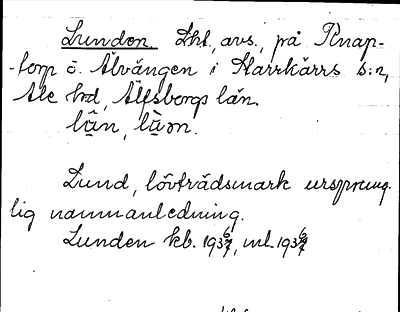 Lunden tkt, avs., på Knap-
-torp ö. Älvängen i Starrkärrs s:n,
Ale hd, Älfsborgs län.
Lund, lövträdsmark ursprung
lig namnanledning.
Lunden kb. 193 , ml. 193